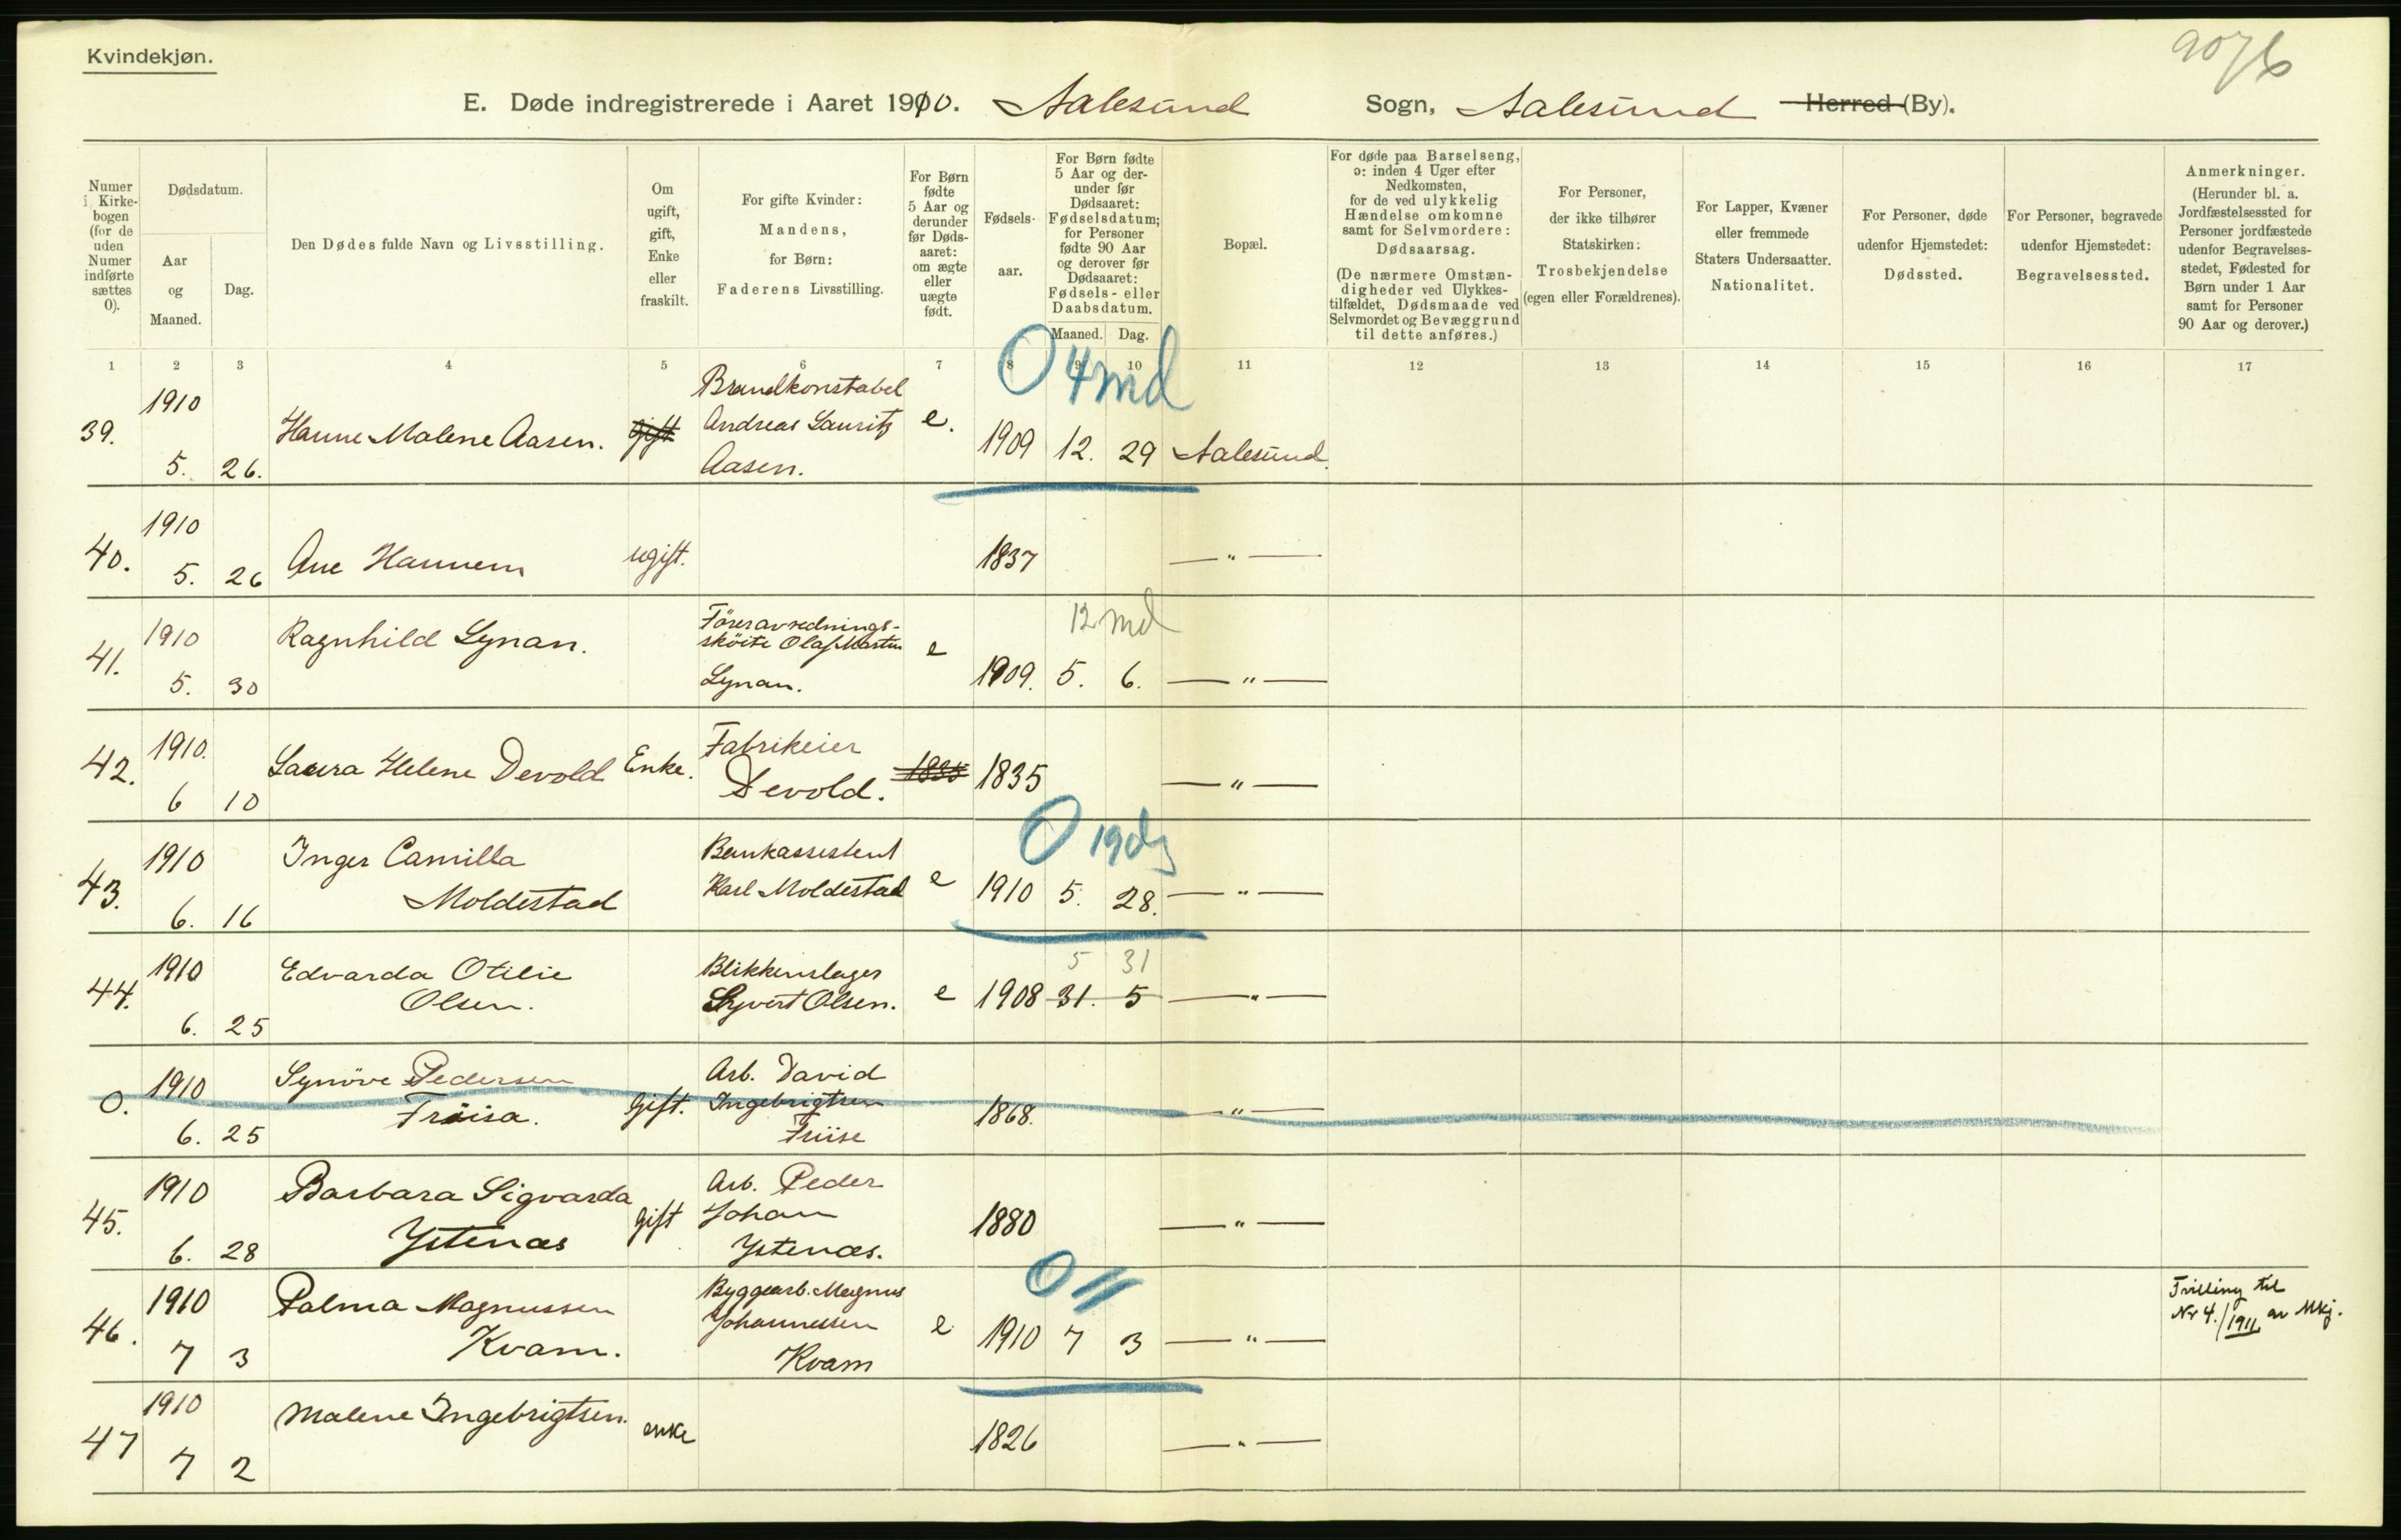 Kvindekjøn.
9076
E. Døde indregistrerede i Aaret 1910. Aalesund Sogn, Aalesund Herred (By).
Numer i Kirkebogen (for de uden Numer indførte sættes 0).
Dødsdatum.
Aar og Maaned.
Dag.
Den Dødes fulde Navn og Livsstilling.
Om ugift, gift, Enke eller fraskilt.
For gifte Kvinder: Mandens, for Børn: Faderens Livsstilling.
For Børn fødte 5 Aar og derunder før Dødsaaret: om ægte eller uægte født.
Fødselsaar.
For Børn fødte 5 Aar og derunder før Dødsaaret: Fødselsdatum; for Personer fødte 90 Aar og derover før Dødsaaret: Fødsels- eller Daabsdatum.
Maaned. Dag.
Bopæl.
For døde paa Barselseng, ɔ: inden 4 Uger efter Nedkomsten, for de ved ulykkelig Hændelse omkomne samt for Selvmordere: Dødsaarsag.
(De nærmere Omstændigheder ved Ulykkestilfældet, Dødsmaade ved Selvmordet og Bevæggrund til dette anføres.)
For Personer, der ikke tilhører Statskirken: Trosbekjendelse (egen eller Forældrenes).
For Lapper, Kvæner eller fremmede Staters Undersaatter. Nationalitet.
For Personer, døde udenfor Hjemstedet: Dødssted.
For Personer, begravede udenfor Hjemstedet: Begravelsessted.
Anmerkninger. (Herunder bl. a. Jordfæstelsessted for Personer jordfæstede udenfor Begravelsesstedet, Fødested for Børn under 1 Aar samt for Personer 90 Aar og derover.)
1 2 3 4 5 6 7 8 9 10 11 12 13 14 15 16 17
0 4 md
39. 1910 5. 26. Hanne Malene Aasen. gift Brandkonstabel Andreas Laurits Aasen. e. 1909 12. 29 Aalesund.
40. 1910 5. 26 Ane Hannem ugift. 1837 — " —
12 md
41. 1910 5. 30 Ragnhild Lynan. Föreravrednings-sköite Olaf Martin Lynan. e 1909. 5. 6. — " —
42. 1910. 6 10 Laura Helene Devold Enke. Fabrikeier Devold. 1835 1835 — " —
0 19 dg
43. 1910 6. 16 Inger Camilla Moldestad Bankassistent Karl Moldestad e 1910 5. 28. — " —
5 31
44. 1910 6. 25 Edvarda Otilie Olsen. Blikkenslager Syvert Olsen. e 1908 31. 5 — " —
0. 1910 6. 25 Synöve Pedersen Fröisa. Gift. Arb. David Ingebrigtsen 1868. — " —
45. 1910 6. 28 Barbara Sigvarda Ystenæs gift Arb. Peder Johan Ystenæs. 1880 — " —
0 11
46. 1910 7 3 Palma Magnussen Kvam. Byggearb. Magnus Johannessen Kvam e 1910 7 3 — " — Tvilling til Nr 4./1911 av Mkj.
47 1910 7 2 Malene Ingebrigtsen. enke 1826 — " —